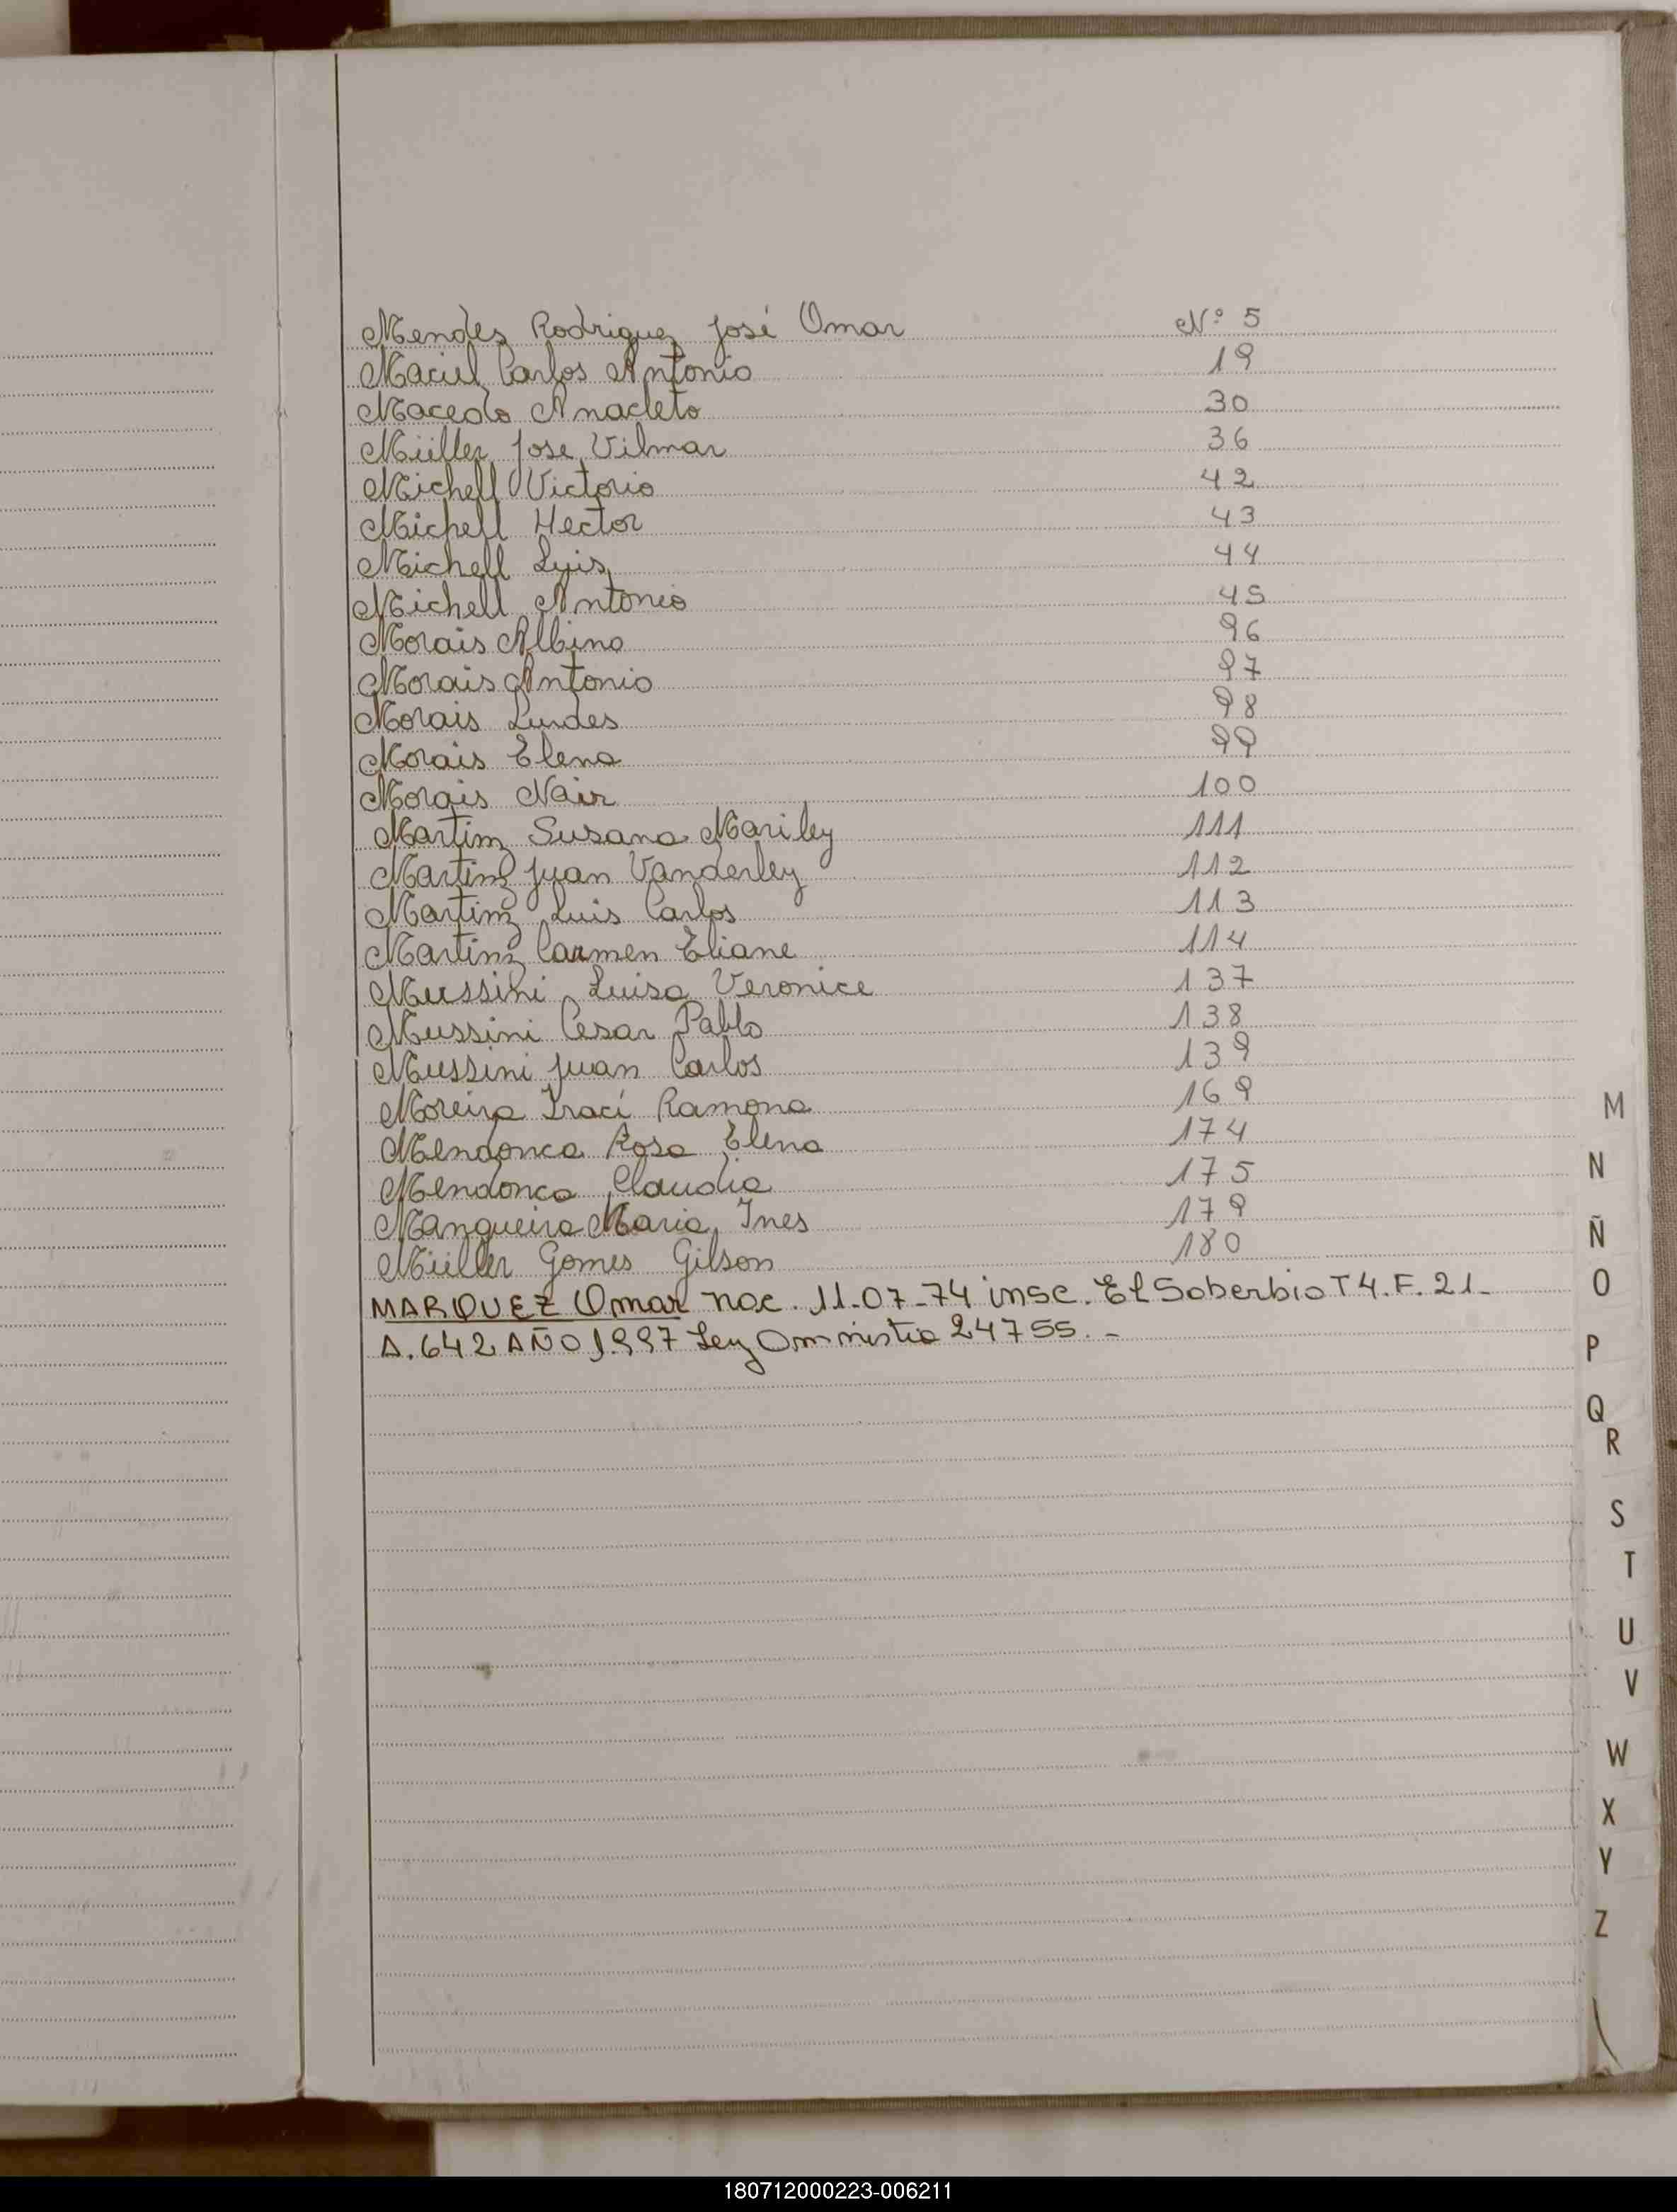 Mendes Rodriguez José Omar Nº 5
Maciel Carlos Antonio 19
Macedo Anacleto 30
Müller Jose Vilmar 36
Michell Victorio 42
Michell Hector 43
Michell Luis 44
Michell Antonio 45
Morais Albino 96
Morais Antonio 97
Morais Lurdes 98
Morais Elena 99
Morais Nair 100
Martinz Susana Mariley 111
Martinz Juan Vanderley 112
Martinz Luis Carlos 113
Martinz Carmen Eliane 114
Mussini Luisa Veronice 137
Mussini Cesar Pablo 138
Mussini Juan Carlos 139
Moreira Iraci Ramona 169
Mendonca Rosa Elena 174
Mendonca Claudia 175
Mangueira Maria Ines 179
Müller Gomes Gilson 180
MARQUEZ Omar nac. 11-07-74 insc. El Soberbio T 4. F. 21-
A. 642 AÑO 1.997 Ley Omnistia 24755.-
M
N
Ñ
O
P
Q
R
S
T
U
V
W
X
Y
Z
180712000223-006211